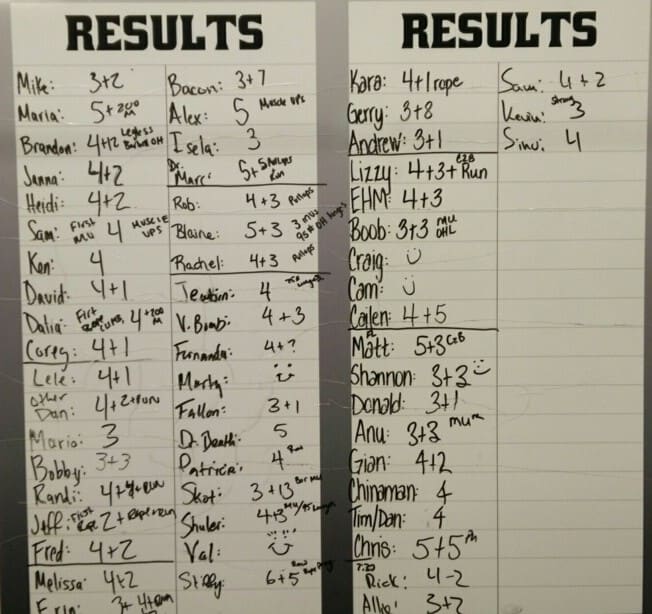 RESULTS
Mike: 3+2
Maria: 5+200 M
Brandon: 4+12 Legless
Janna: 4+2
Heidi: 4+2
Sam: First MU 4 MUSCLE UPS
Ken: 4
David: 4+1
Dalia: First Rope 4+200 M
Corey: 4+1
Lele: 4+1
other Dan: 4+2+RUN
Maria: 3
Bobby: 3+3
Randi: 4+4+RUN
Jeff: First Rope 2+Rope+run
Fred: 4+2
Melissa: 4+2
Erin: 3+4+Run
Bacon: 3+7
Alex: 5 Muscle UPS
Isela: 3
Dr. Marc: 5+5 Pullups Run
Rob: 4+3 Pullups
Blaine: 5+3 3 MUs 95# OH lunges
Rachel: 4+3 Pullups
4 lunges
V. Bomb: 4+3
Fernanda: 4+?
Marty:
Fallon: 3+1
Dr. Death: 5
Patricia: 4
Skot: 3+13 Bar MU
Shuler: 4+3
Val:
6+5
RESULTS
Kara: 4+1 rope
Gerry: 3+8
Andrew: 3+1
Lizzy: 4+3+Run C2B
EHM: 4+3
Boob: 3+3 MU OHL
Craig:
Cam:
Collen: 4+5
Matt: 5+3 C2B
Shannon: 3+3
Donald: 3+1
Anu: 3+3
Gian: 4+2
Chinaman: 4
Tim/Dan: 4
Chris: 5+5
7:30
Rick: 4-2
Allie: 3+2
Sam: 4+2
Kevin: strong 3
4